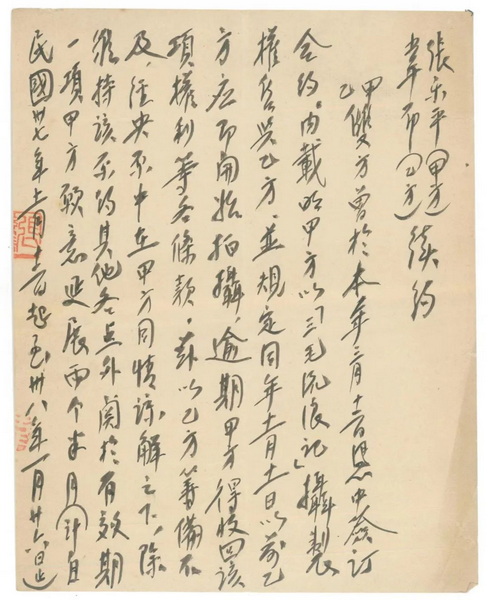 张乐平(甲方)
韋布(乙方) 續約
甲乙雙方曾於本年三月十一日憑中簽訂
合約,内載明甲方以「三毛流浪记」攝製
權售與乙方,並規定同年十一月十一日以前乙
方应即開始拍攝,逾期甲方得收回該
項權利等各條款,兹以乙方籌備不
及,経央原中在甲方同情諒解之下,除
維持該原约其他各点外関於有效期
一項甲方願意延展兩个半月(計自
民國卅七年十一月十一日起至卅八年一月廿六日止)